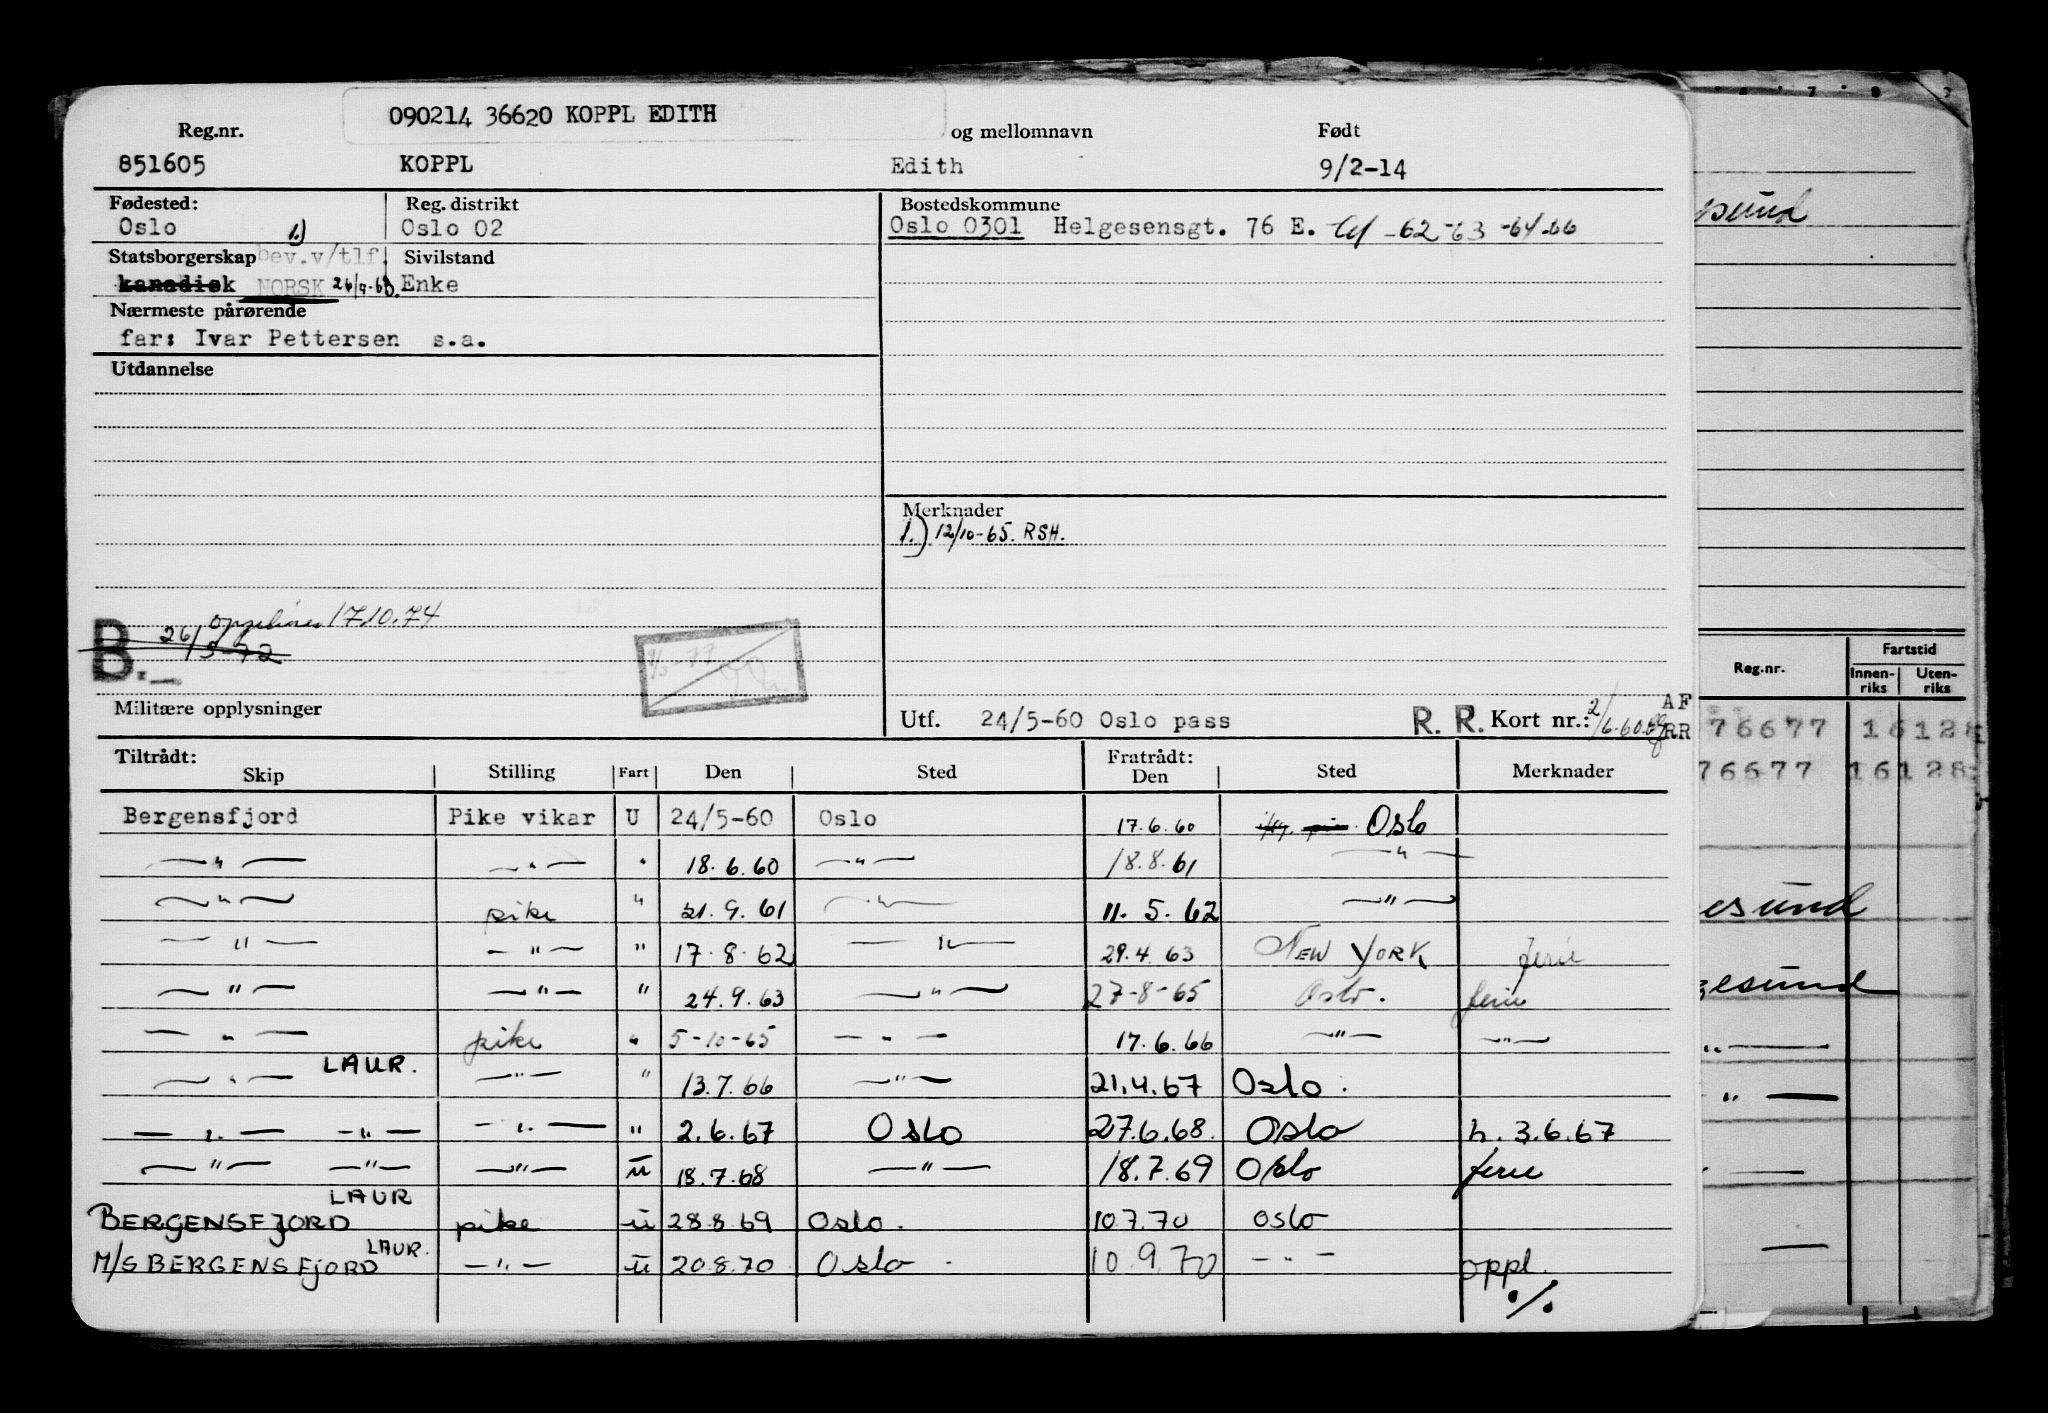 090214 36620 KOPPL EDITH
Reg.nr. og mellomnavn Født
851605 KOPPL Edith 9/2-14
Fødested: Reg. distrikt Bostedskommune
Oslo 1.) Oslo 02 Oslo 0301 Helgesensgt. 76 E. -62-63-64-66
Statsborgerskap bev.v/tlf. Sivilstand
kanadisk NORSK Enke
Nærmeste pårørende
far: Ivar Pettersen s.a.
Utdannelse
Merknader
1.) 12/10-65. RSH.
17.10.74
B. 26/5-72
1/3-77
Militære opplysninger Utf. 24/5-60 Oslo pass R. R. Kort nr.: 2/6.60 AF RR
Tiltrådt: Fratrådt:
Skip Stilling Fart Den Sted Den Sted Merknader
Bergensfjord Pike vikar U 24/5-60 Oslo 17.6.60 Oslo
—"— —"— " 18.6.60 —"— 18.8.61 —"—
—"— pike " 21.9.61 —"— 11.5.62 —"—
—"— —"— " 17.8.62 —"— 29.4.63 NEW YORK ferie
—"— —"— " 24.9.63 —"— 27-8-65 Oslo. ferie
—"— pike " 5-10-65 —"— 17.6.66 —"— —"—
—"— LAUR. —"— " 13.7.66 —"— 21.4.67 Oslo.
—"— —"— —"— " 2.6.67 Oslo 27.6.68. Oslo h. 3.6.67
—"— —"— —"— u 18.7.68 —"— 18.7.69 Oslo ferie
BERGENSFJORD LAUR pike u 28.8.69 Oslo. 10.7.70 Oslo
M/S BERGENSFJORD LAUR. —"— u 20.8.70 Oslo 10.9.70 —"— oppl.
./.
Reg.nr. Fartstid
Innen-riks Uten-riks
76677 16128
76677 16128
esund
gesund